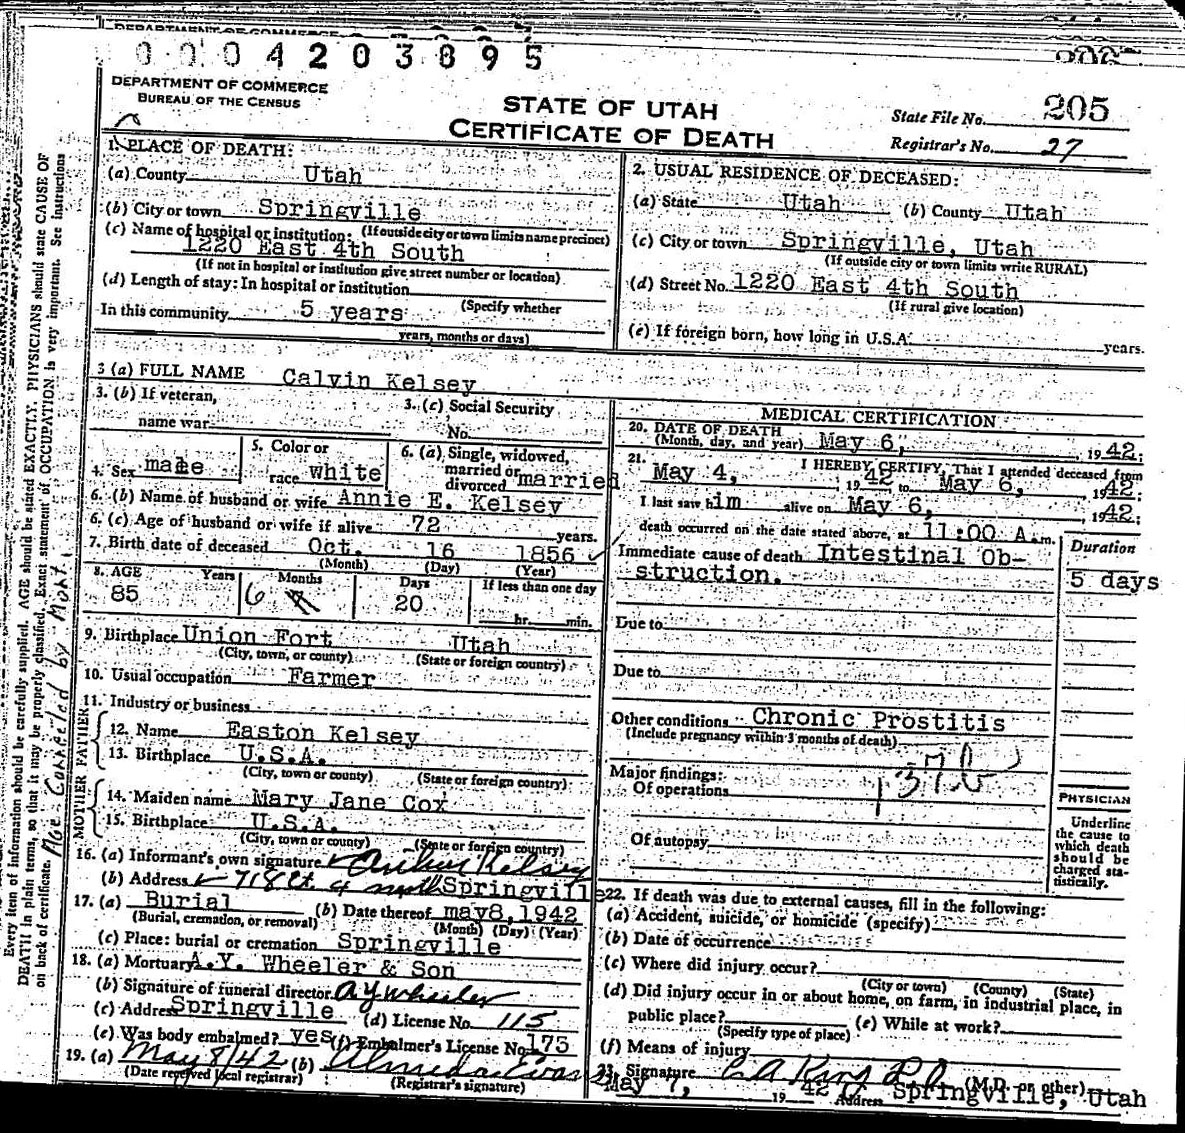 0 0 0 4 2 0 3 8 9 5
206
DEPARTMENT OF COMMERCE
BUREAU OF THE CENSUS
STATE OF UTAH
CERTIFICATE OF DEATH
State File No. 205
Registrar's No. 27
1. PLACE OF DEATH:
(a) County Utah
(b) City or town Springville
(c) Name of hospital or institution: (If outside city or town limits name precinct)
1220 East 4th South
(If not in hospital or institution give street number or location)
(d) Length of stay: In hospital or institution
(Specify whether
In this community 5 years
years, months or days)
2. USUAL RESIDENCE OF DECEASED:
(a) State Utah (b) County Utah
(c) City or town Springville, Utah
(If outside city or town limits write RURAL)
(d) Street No. 1220 East 4th South
(If rural give location)
(e) If foreign born, how long in U.S.A. years.
3 (a) FULL NAME Calvin Kelsey
3. (b) If veteran,
name war
3. (c) Social Security
No.
4. Sex male
5. Color or
race white
6. (a) Single, widowed,
married or
divorced married
6. (b) Name of husband or wife Annie E. Kelsey
6. (c) Age of husband or wife if alive 72 years.
7. Birth date of deceased Oct. 16 1856
(Month) (Day) (Year)
8. AGE Years Months Days If less than one day
85 6 20
hr. min.
9. Birthplace Union Fort Utah
(City, town, or county) (State or foreign country)
10. Usual occupation Farmer
11. Industry or business
FATHER
12. Name Easton Kelsey
13. Birthplace U.S.A.
(City, town or county) (State or foreign country)
MOTHER
14. Maiden name Mary Jane Cox
15. Birthplace U.S.A.
(City, town or county) (State or foreign country)
16. (a) Informant's own signature Arthur Kelsey
(b) Address 718 Springville
17. (a) Burial (b) Date thereof may8, 1942
(Burial, cremation, or removal) (Month) (Day) (Year)
(c) Place: burial or cremation Springville
18. (a) Mortuary A.Y. Wheeler & Son
(b) Signature of funeral director A Y Wheeler
(c) Address Springville (d) License No. 115
(e) Was body embalmed? yes (f) Embalmer's License No. 175
19. (a) May 8/42 (b) Almeda Evans
(Date received local registrar) (Registrar's signature)
MEDICAL CERTIFICATION
20. DATE OF DEATH
(Month, day, and year) May 6, 1942.
21. I HEREBY CERTIFY, That I attended deceased from
May 4, 1942 to May 6, 1942;
I last saw him alive on May 6, 1942;
death occurred on the date stated above, at 11:00 A.m.
Immediate cause of death Intestinal Ob-
struction.
Duration
5 days
Due to
Due to
Other conditions Chronic Prostitis
(Include pregnancy within 3 months of death)
137b
Major findings:
Of operations
Of autopsy
PHYSICIAN
Underline
the cause to
which death
should be
charged sta-
tistically.
22. If death was due to external causes, fill in the following:
(a) Accident, suicide, or homicide (specify)
(b) Date of occurrence
(c) Where did injury occur?
(City or town) (County) (State)
(d) Did injury occur in or about home, on farm, in industrial place, in
public place? (e) While at work?
(Specify type of place)
(f) Means of injury
23. Signature (M.D. or other)
May 7, 1942 Address Springville, Utah
Every item of information should be carefully supplied. AGE should be stated EXACTLY. PHYSICIANS should state CAUSE OF
DEATH in plain terms, so that it may be properly classified. Exact statement of OCCUPATION is very important. See Instructions
on back of certificate.